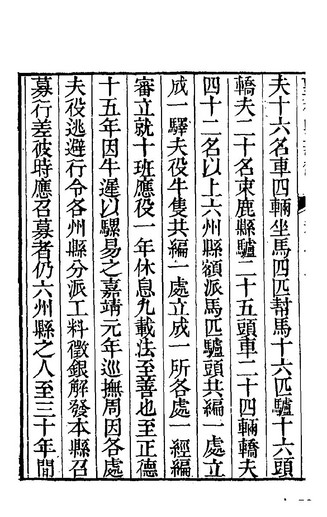 夫十六名車四輛坐馬四匹封馬十六匹驢十六頭
轎夫二十名束鹿縣驢二十五頭車二十四輛轎夫
四十二名以上六州縣額派馬匹驢頭共編一處立
成一驛夫役牛隻共編一處立成一所各處一經編
審立就十班應役一年休息九載法至善也至正德
十五年因牛遲以騾易之嘉靖元年巡撫周因各處
夫役逃避行令各州縣分派工料徵銀解發本縣召
募行差彼時應召募者仍六州縣之人至三十年間